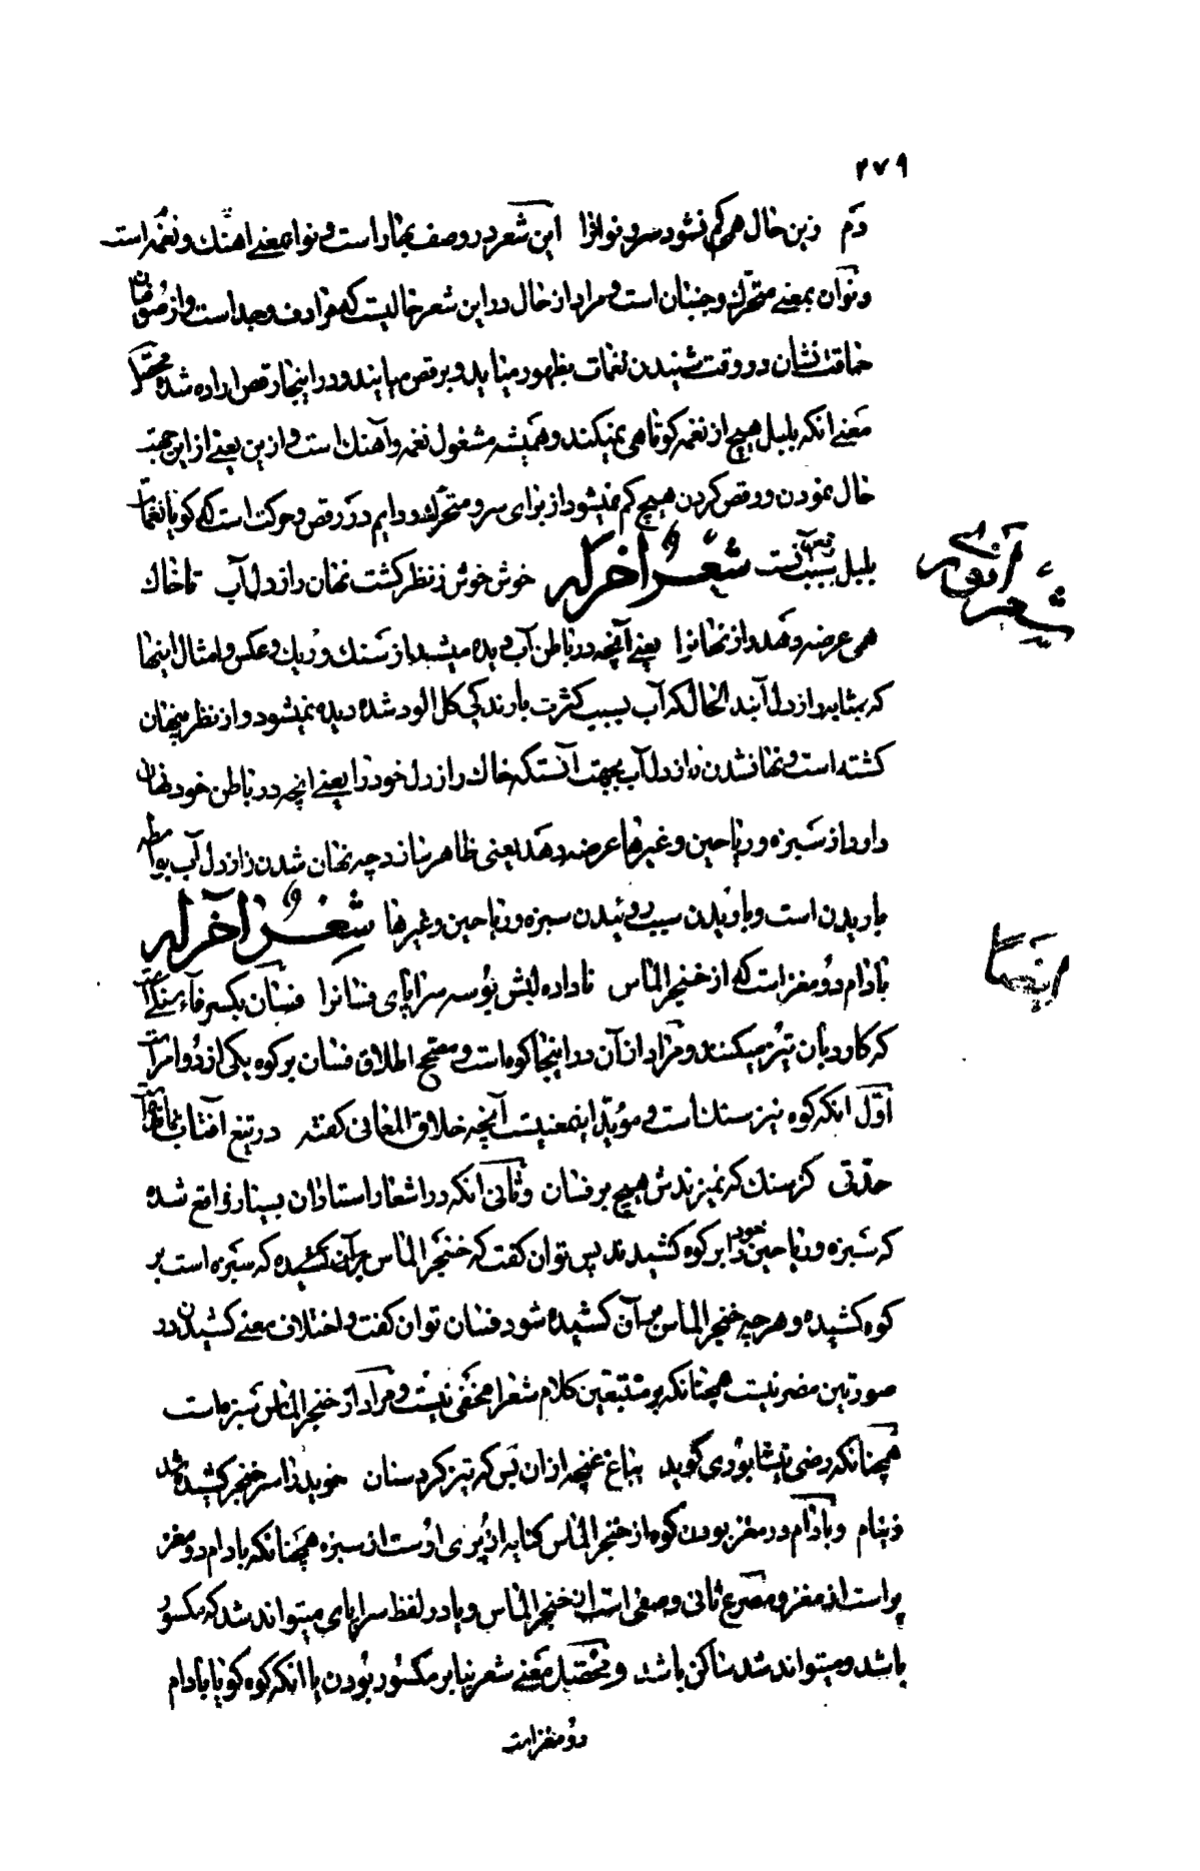 ۲۷۹
دم وزین حال همی کم نشود سرو نوانرا این شعر در وصف بهار است و نوا بمعنی اهنك و نغمه است
و نوان بمعنی متحرك و جنبان است و مراد از حال در این شعر حالیست که مرادف وجد است و از صوفیان
حماقت نشان در وقت شنیدن نغمات بظهور میاید و برقص میایند و در اینجا رقص اراده شده محصل
معنی انکه بلبل هیچ از نغمه کوتاهی نمیکند و همیشه مشغول نغمه و آهنك است و ازین یعنی از این جهت
حال نمودن و رقص کردن هیچ کم نمیشود از برای سرو متحرك و دایم در رقص و حرکت است که کویا نغمات
بلبل بسبب رقص آنست شعر آخر له خوش خوش ز نظر کشت نهان راز دل آب تا خاك
شعر آخر انوری
همی عرضه دهد راز نهانرا یعنی آنچه در باطن آب دیده میشد از سنك و ریك و عکس و امثال اینها
که بمثابه راز دل آبند الحال که آب بسبب کثرت بارندکی کل الود شده دیده نمیشود و از نظر پنهان
کشته است و نهانشدن راز دل آب بجهت آنستکه خاك راز دل خود را یعنی انچه در باطن خود نهان
دارد از سبزه و ریاحین و غیرها عرضه دهد یعنی ظاهر سازد چه نهان شدن راز دل آب بواسطه
باریدن است و باریدن سبب روئیدن سبزه و ریاحین و غیرها شعر آخر له
ایضا
بادام دو مغز است که از خنجر الماس ناداده لبش بوسه سراپای فسانرا فسان بکسر فاء سنکی است
که کارد بآن تیز میکنند و مراد از آن در اینجا کوه است و مصحح اطلاق فسان بر کوه یکی از دو امر است
اوّل انکه کوه نیز سنك است و مؤید اینمعنیست آنچه خلاق المعانی کفته در تیغ آفتاب نماند
حدّتی کز سنك که نمیزندش هیچ بر فسان و ثانی انکه در اشعار استادان بسیار واقع شده
که سبزه و ریاحین خود را بر کوه کشیدند پس توان کفت که خنجر الماس بر آن کشیده که سبزه است بر
کوه کشیده و هر چیز خنجر الماس بر آن کشیده شود فسان توان کفت و اختلاف معنی کشیدن در
صورتین مضر نیست همچنانکه بر متتبعین کلام شعرا مخفی نیست و مراد از خنجر الماس سبزه است
همچنانکه رضی نیشابوری کوید بباغ غنچه از ان پس که تیز کرد سنان خوید را سر خنجر کشیده شد
ز نیام و بادام دو مغز بودن کوه از خنجر الماس کنایه از پری اوست از سبزه همچنانکه بادام دو مغز
پر است از مغز و مصرع ثانی وصفی است از خنجر الماس و یا در لفظ سراپای میتواند شد که مکسور
باشد و میتواند شد ساکن باشد و محصل معنی شعر بنا بر مکسور بودن یا انکه کوه کویا بادام
دو مغز است